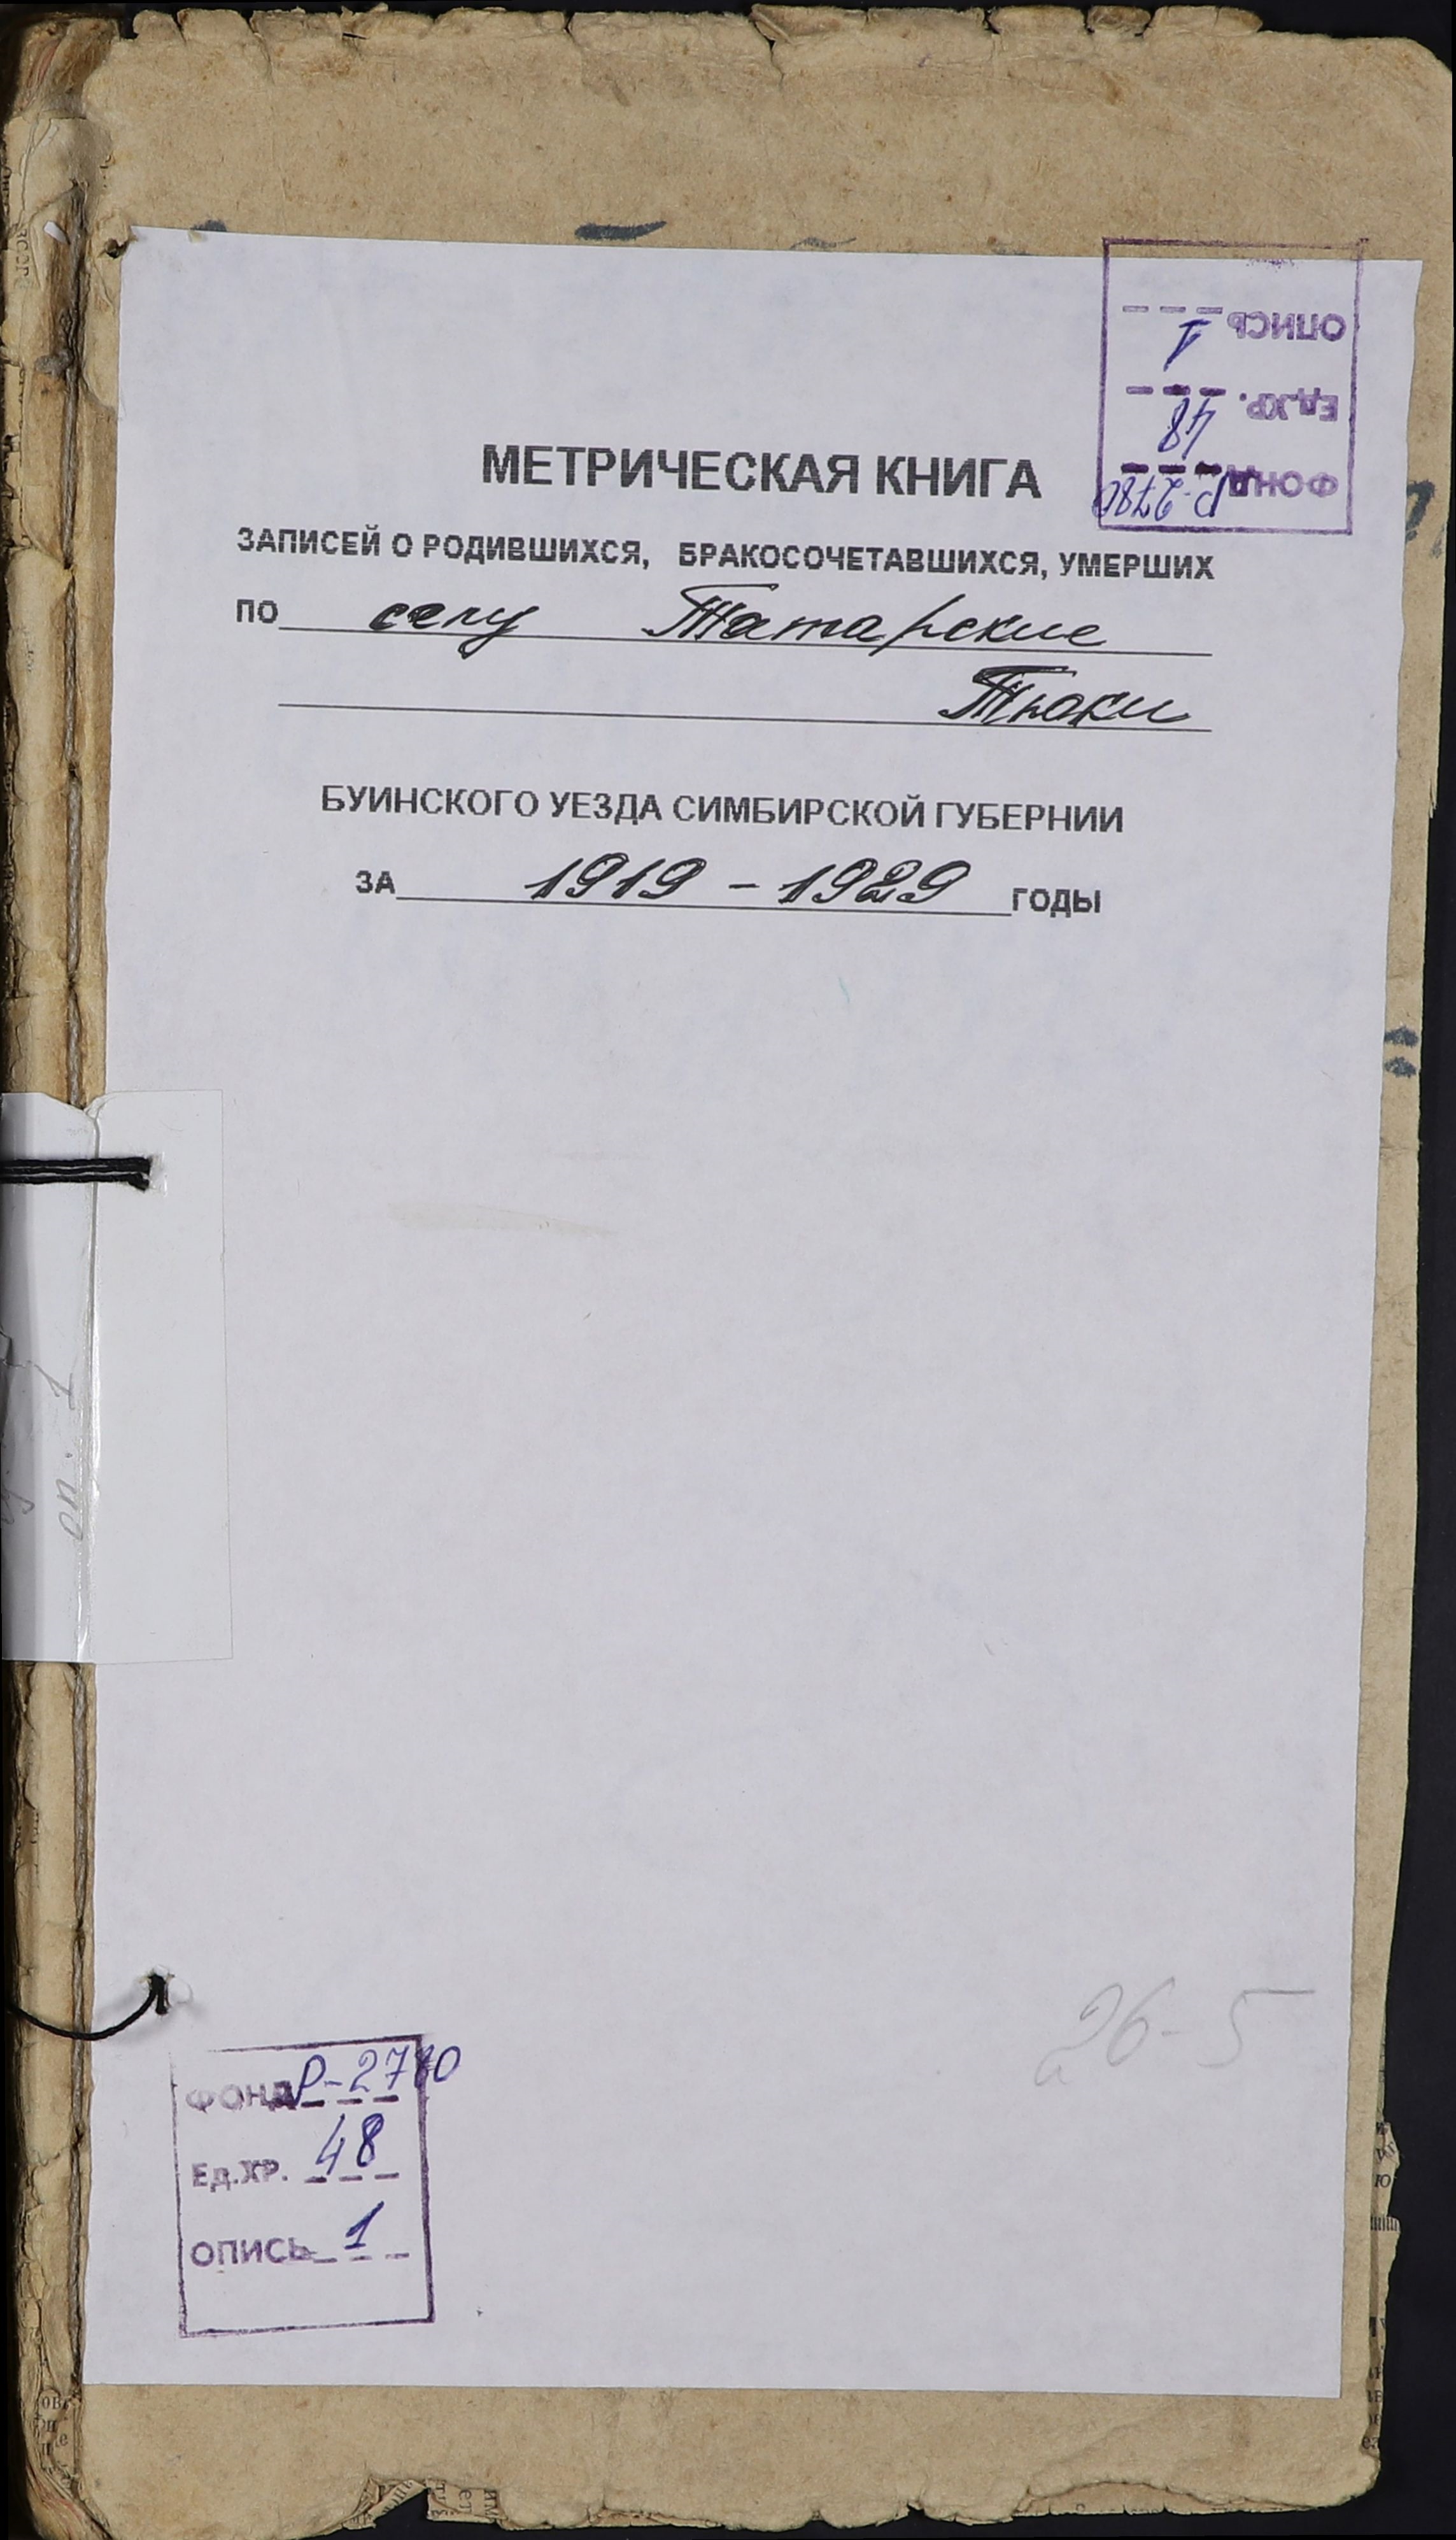 ОПИСЬ 1
Ед.ХР. 48
ФОНД Р-2780
МЕТРИЧЕСКАЯ КНИГА
ЗАПИСЕЙ О РОДИВШИХСЯ, БРАКОСОЧЕТАВШИХСЯ, УМЕРШИХ
ПО селу Татарские
Тюки
БУИНСКОГО УЕЗДА СИМБИРСКОЙ ГУБЕРНИИ
ЗА 1919 - 1929 ГОДЫ
оп. 1
26-5
ФОНД Р-2780
Ед.ХР. 48
ОПИСЬ 1